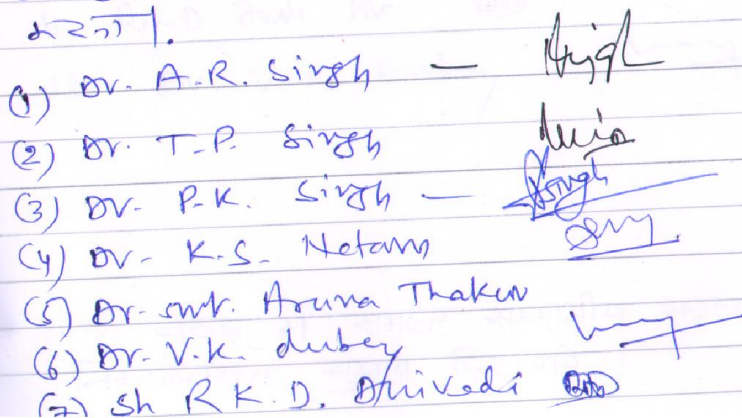 करना।
(1) Dr. A.R. Singh —
(2) Dr. T.P. Singh
(3) Dr. P.K. Singh — Singh
(4) Dr. K.S. Netam
(5) Dr. smt. Aruna Thakur
(6) Dr. V.K. dubey
(7) Sh R K. D. Dwivedi